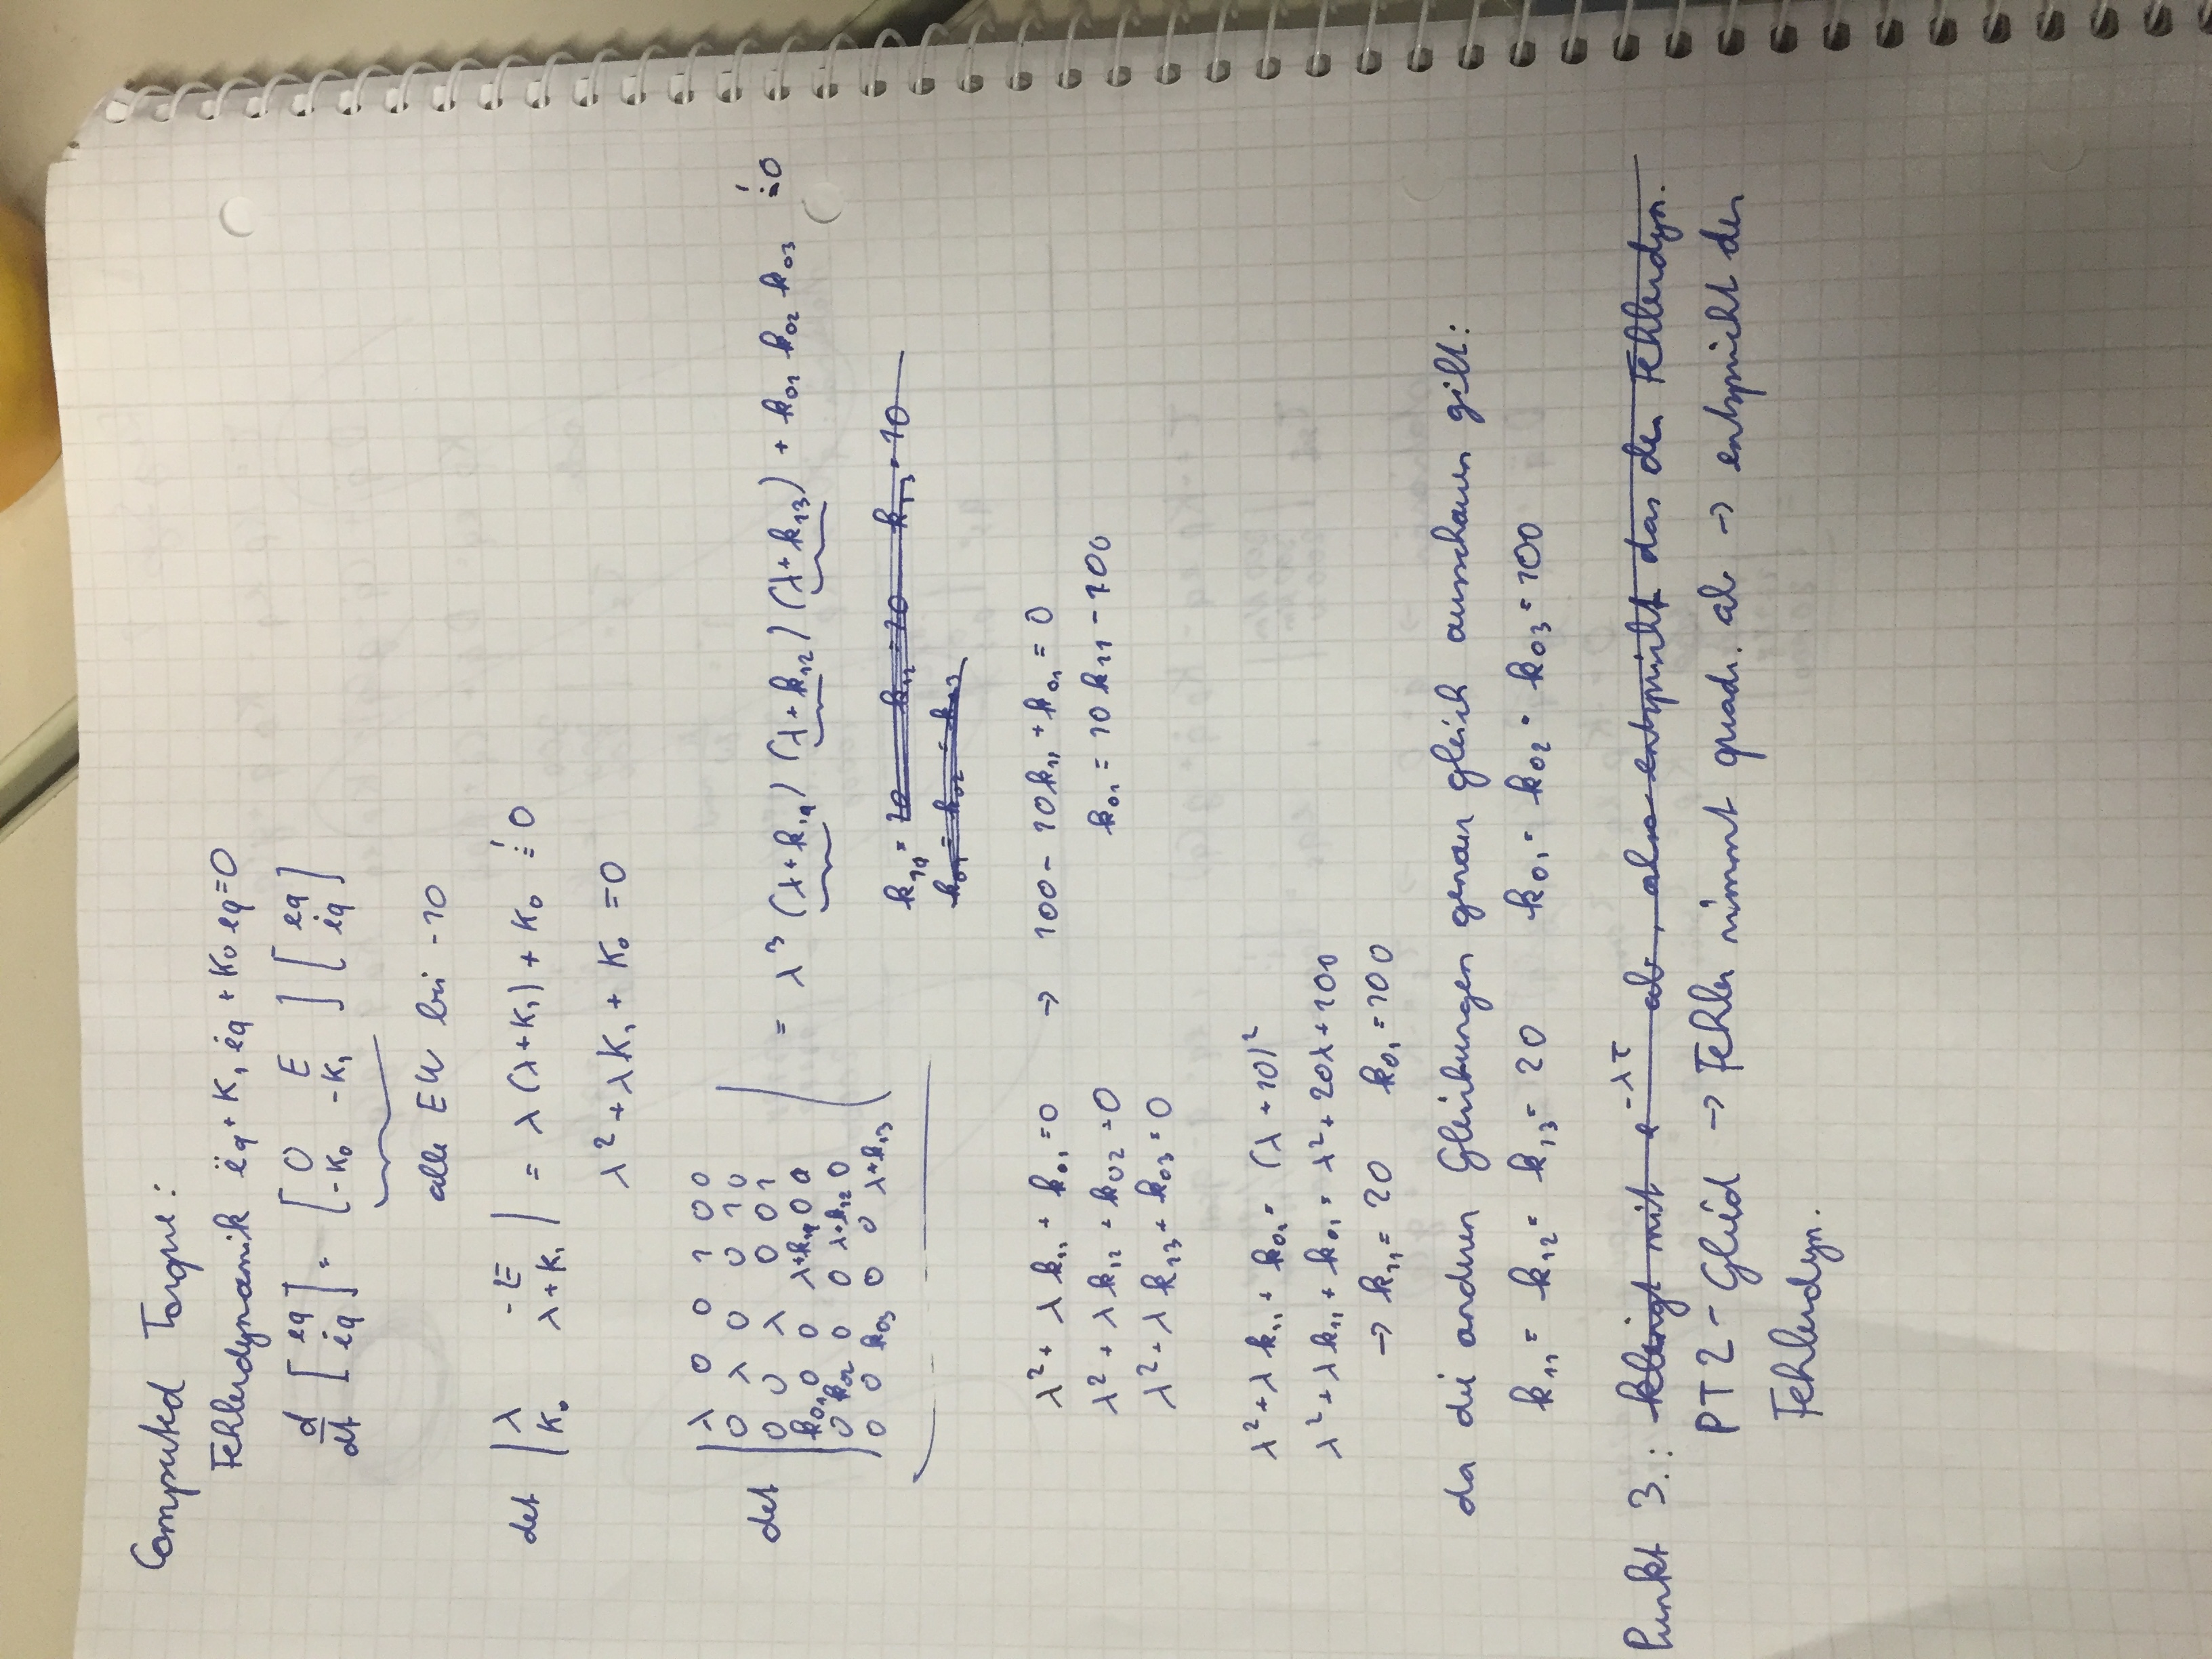 Computed Torque:
Fehlerdynamik ëq + K₁ ėq + K₀ eq = 0
d/dt [eq ėq] = [0 E -K₀ -K₁] [eq ėq]
alle EW bei -10
det |λ -E K₀ λ+K₁| = λ(λ+K₁) + K₀ != 0
λ² + λK₁ + K₀ = 0
det |λ 0 0 1 0 0
0 λ 0 0 1 0
0 0 λ 0 0 1
k₀₁ 0 0 λ+k₁₁ 0 0
0 k₀₂ 0 0 λ+k₁₂ 0
0 0 k₀₃ 0 0 λ+k₁₃| = λ³ (λ+k₁₁) (λ+k₁₂) (λ+k₁₃) + k₀₁ k₀₂ k₀₃ != 0
k₁₁ = 20 k₁₂ = 20 k₁₃ = 10
k₀₁ = k₀₂ = k₀₃
λ² + λ k₁₁ + k₀₁ = 0 → 100 - 10k₁₁ + k₀₁ = 0
λ² + λ k₁₂ + k₀₂ = 0 k₀₁ = 10 k₁₁ - 100
λ² + λ k₁₃ + k₀₃ = 0
λ² + λ k₁₁ + k₀₁ = (λ + 10)²
λ² + λ k₁₁ + k₀₁ = λ² + 20λ + 100
→ k₁₁ = 20 k₀₁ = 100
da die anderen Gleichungen genau gleich ausschauen gilt:
k₁₁ = k₁₂ = k₁₃ = 20 k₀₁ = k₀₂ = k₀₃ = 100
Punkt 3.: klingt mit e^-λτ ab, also entspricht das der Fehlerdyn.
PT2-Glied → Fehler nimmt quadr. ab → entspricht der
Fehlerdyn.